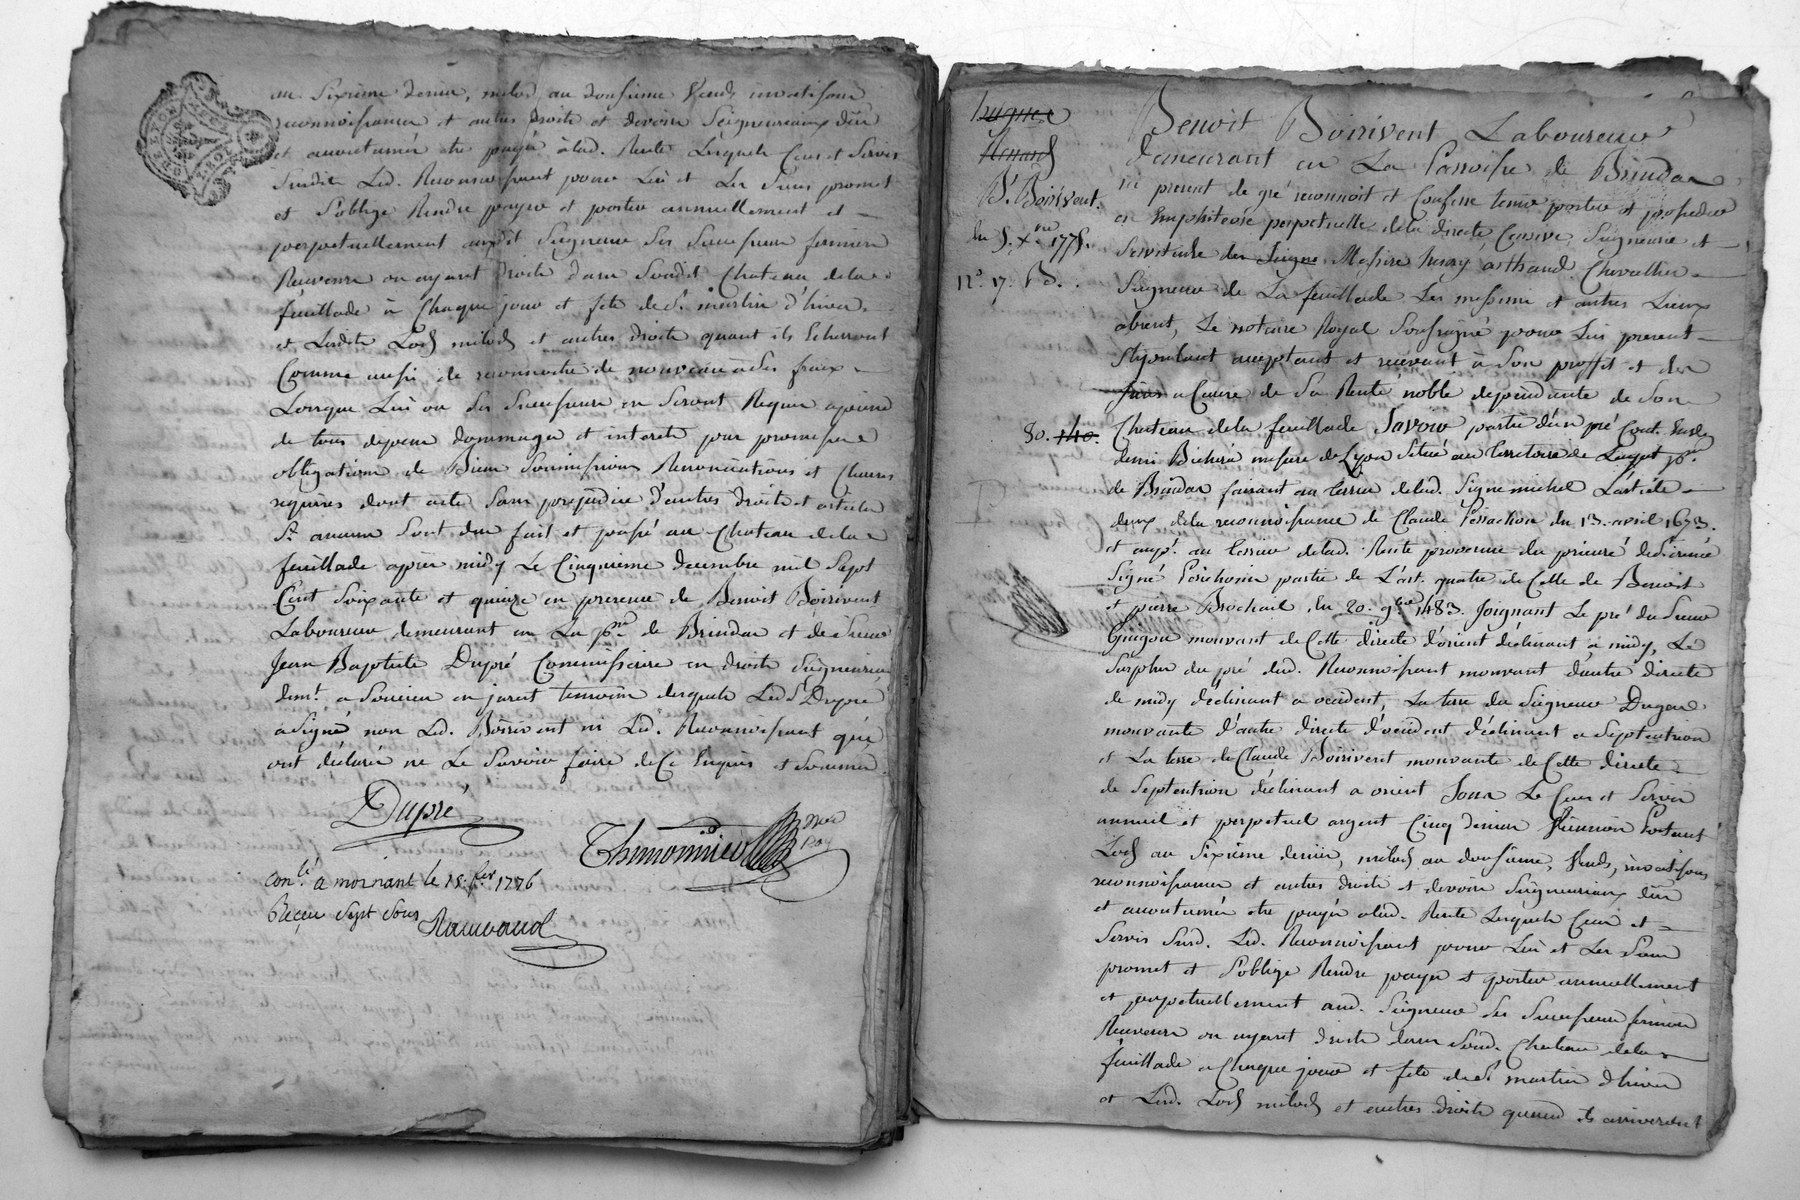 au sixieme denier, milod au douzieme Vends investisons
reconnoissances et autres droits et devoirs Seigneuriaux dûs
et accoutumés etre payés à lad. Rente Lesquels Cens et Servis
Susdits Led. Reconnoissant pour Lui et Les Siens promet
et S'obblige Rendre payer et porter annuellement et
perpetuellement audit Seigneur Ses Successeurs fermiers
Receveurs ou ayants droits dans Sondit Chateau de la
feuillade à Chaque jour et fete de St martin d'hiver,
et Lesdits Lods milods et autres droits quant ils Echerront
Comme aussi de reconnoitre de nouveau à Ses fraix
Lorsque Lui ou Ses Successeurs en Seront Requis apeine
de tous depens dommages et interets par promesses
obligations de Biens Soumissions Renonciations et Clauses
requises dont acte Sans prejudice d'autres droits et articles
Sy aucuns Sont dus fait et passé au Chateau de la
feuillade après midy Le Cinquieme decembre mil Sept
Cent Soixante et quinze en presence de Benoit Boirivent
Laboureur demeurant en La psse de Brindas et de Sieur
Jean Baptiste Dupré Commissaire en droits Seigneuriaux
demt. a Soucieu en jarest temoins lesquels Led Sr Dupré
a Signé non Led. Boirivent ni Led. Reconnoissant qui
ont déclaré ne Le Savoir faire de Ce Enquis et Sommés.
Dupré
Thimonnier Nre Roy
Conlé a mornant le 15 fer 1776
Reçeu Sept Sous
Benoit Boirivent Laboureur
demeurant en La Parroisse de Brindas
B. Boirivent.
du 5. Xre 1775.
N° 17.
de gré reconnoit et Confesse tenir porter et posseder
en Emphiteose perpetuelle de la directe Censive, Seigneurie et
Servitude des Messire henry arthaud Chevallier
Seigneur de La feuillade Les messimi et autres Lieux
absent, Le notaire Royal Soussigné pour Lui present
Stipulant acceptant et recevant à Son proffit et des
siens a Cause de Sa Rente noble dependante de Son
80. 140.
Chateau de la feuillade Savoir partie d'un pré Cont.
demi Bicherée mesure de Lyon Situé au Territoire de
de Brindas faisant au terrier de lad. Signé michel L'article
deux de la reconnoissance de Claude du 13. avril 1673.
et au terrier de lad. Rente provenue du prieuré
Signé partie de L'art. quatre de Celle de Benoit
et pierre Brochail du 20. 9bre 1483. Joignant Le pré du Sieur
Guigou mouvant de Cette directe d'orient déclinant a midy, Le
Surplus du pré dud. Reconnoissant mouvant d'autre directe
de midy déclinant a occident, La terre du Seigneur Dugas
mouvante d'autre directe d'occident déclinant a Septentrion
et La terre de Claude Boirivent mouvante de Cette directe
de Septentrion déclinant a orient Sous Le Cens et Servis
annuel et perpetuel argent Cinq deniers
Lods au Sixieme denier, milods au douzieme, Vends, investisons
reconnoissances et autres droits et devoirs Seigneuriaux dûs
et accoutumés etre payés a lad. Rente Lesquels Cens et
Servis Susd. Led. Reconnoissant pour Lui et Les Siens
promet et S'obblige Rendre payer et porter annuellement
et perpetuellement aud. Seigneur Ses Successeurs fermiers
Receveurs ou ayants droits dans Sond. Chateau de la
feuillade a Chaque jour et fete de St martin d'hiver
et Lesd. Lods milods et autres droits quand ils arriveront